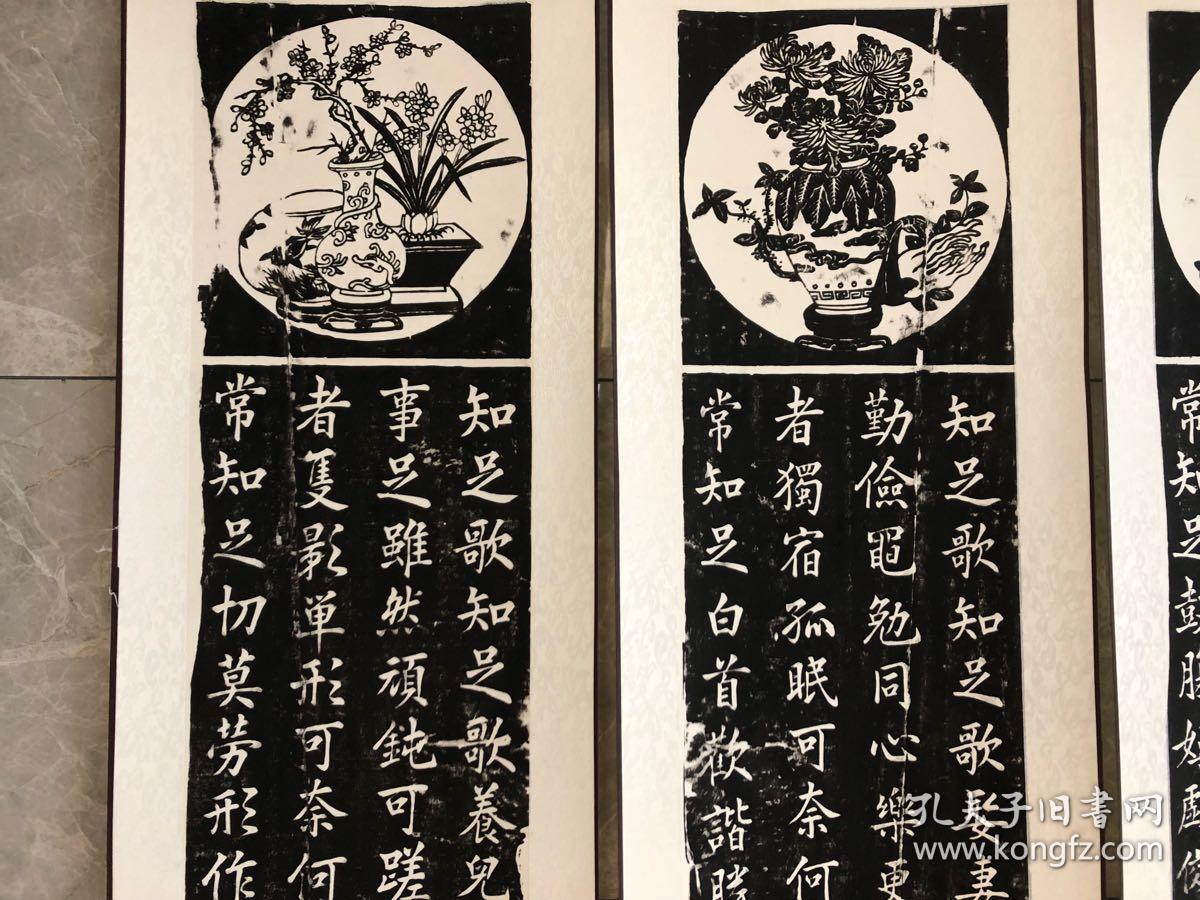 知足歌知足歌髮妻
勤儉黽勉同心樂更
者獨宿孤眠可奈何
常知足白首歡諧勝
知足歌知足歌養兒
事足雖然頑鈍可蹉
者隻影單形可奈何
常知足切莫劳形作
常知足彭
孔夫子旧书网
www.kongfz.com